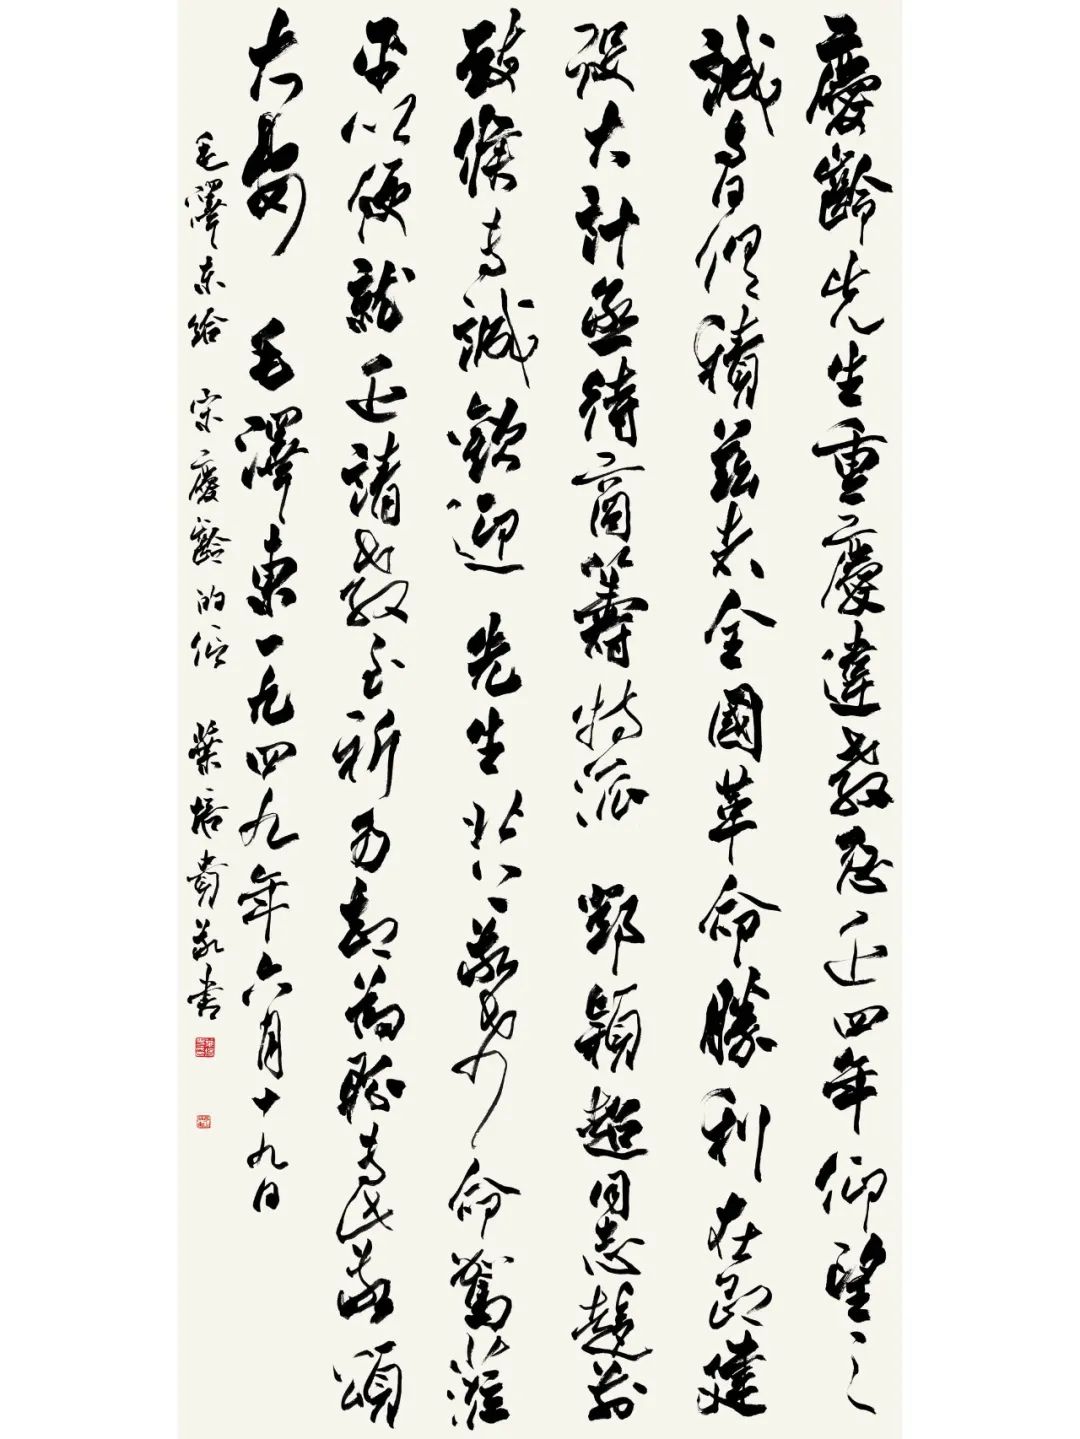 慶齡先生重慶違教忽近四年仰望之
誠与日俱積茲者全國革命勝利在即建
設大計亟待商籌特派 鄧穎超同志趨前
致候专誠歡迎 先生北上敬希 命駕蒞
平以便就近請教至祈勿却為盼专此敬頌
大安 毛澤東一九四九年六月十九日
毛澤东給 宋慶齡的信 葉培貴敬书